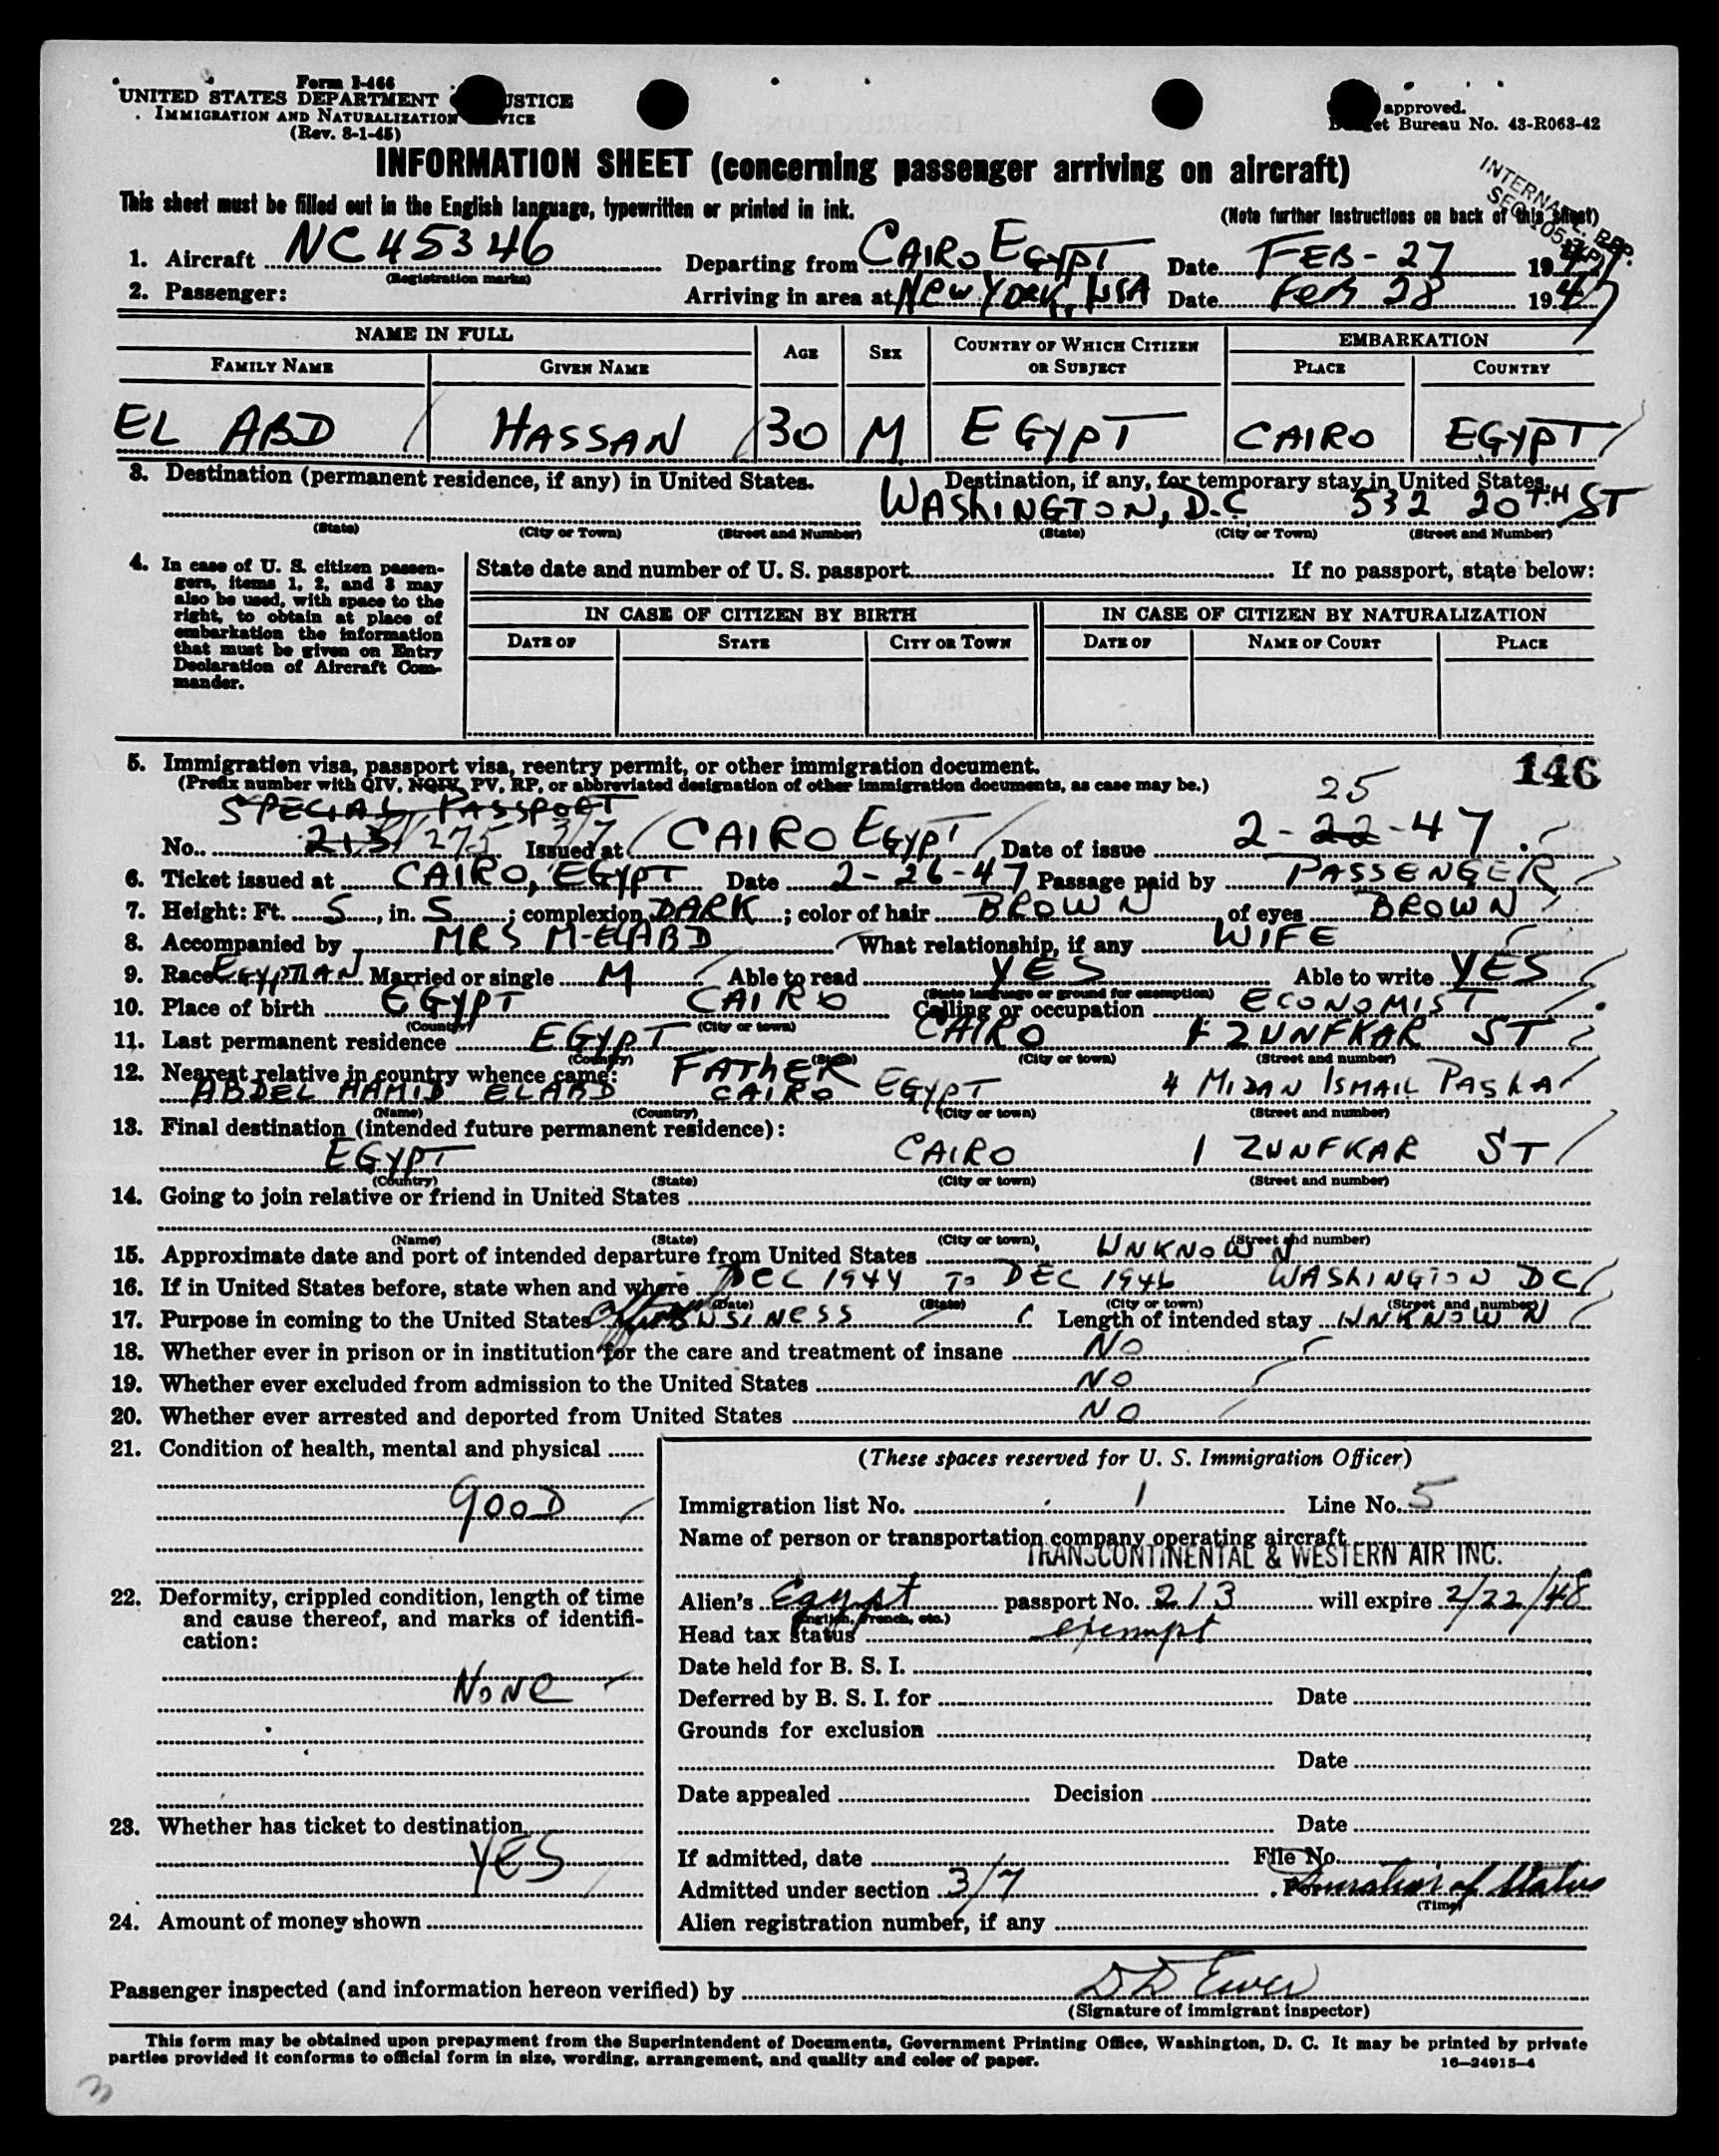 Form I-466
UNITED STATES DEPARTMENT JUSTICE
IMMIGRATION AND NATURALIZATION
(Rev. 8-1-45)
approved.
Bureau No. 43-R063-42
INFORMATION SHEET (concerning passenger arriving on aircraft)
This sheet must be filled out in the English language, typewritten or printed in ink.
(Note further instructions on back of this sheet)
1. Aircraft NC45346 Departing from CAIRO EGYPT Date FEB - 27 1947
(Registration marks)
2. Passenger: Arriving in area at NEW YORK, USA Date FEB 28 1947
NAME IN FULL AGE SEX COUNTRY OF WHICH CITIZEN OR SUBJECT EMBARKATION
FAMILY NAME GIVEN NAME PLACE COUNTRY
EL ABD HASSAN 30 M EGYPT CAIRO EGYPT
3. Destination (permanent residence, if any) in United States. Destination, if any, for temporary stay in United States.
WASHINGTON, D.C 532 20TH ST
(State) (City or Town) (Street and Number) (State) (City or Town) (Street and Number)
4. In case of U. S. citizen passengers, items 1, 2, and 3 may
also be used, with space to the
right, to obtain at place of
embarkation the information
that must be given on Entry
Declaration of Aircraft Com-
mander.
State date and number of U. S. passport If no passport, state below:
IN CASE OF CITIZEN BY BIRTH IN CASE OF CITIZEN BY NATURALIZATION
DATE OF STATE CITY OR TOWN DATE OF NAME OF COURT PLACE
146
5. Immigration visa, passport visa, reentry permit, or other immigration document.
(Prefix number with QIV, NQIV, PV, RP, or abbreviated designation of other immigration documents, as case may be.)
SPECIAL PASSPORT 25
No. 213 275 3/7 Issued at CAIRO EGYPT Date of issue 2-22-47
6. Ticket issued at CAIRO, EGYPT Date 2-26-47 Passage paid by PASSENGER
7. Height: Ft. 5, in. 5; complexion DARK; color of hair BROWN of eyes BROWN
8. Accompanied by MRS M-ELABD What relationship, if any WIFE
9. Race EGYPTIAN Married or single M Able to read YES Able to write YES
(State language or ground for exemption)
10. Place of birth EGYPT CAIRO Calling or occupation ECONOMIST
(Country) (City or town)
11. Last permanent residence EGYPT CAIRO 1 ZUNFKAR ST
(Country) (State) (City or town) (Street and number)
12. Nearest relative in country whence came: FATHER
ABDEL HAMID ELABD CAIRO EGYPT 4 MIDAN ISMAIL PASHA
(Name) (Country) (City or town) (Street and number)
13. Final destination (intended future permanent residence):
EGYPT CAIRO 1 ZUNFKAR ST
(Country) (State) (City or town) (Street and number)
14. Going to join relative or friend in United States
(Name) (State) (City or town) (Street and number)
15. Approximate date and port of intended departure from United States UNKNOWN
16. If in United States before, state when and where DEC 1944 TO DEC 1946 WASHINGTON DC
(Date) (State) (City or town) (Street and number)
17. Purpose in coming to the United States BUSINESS Length of intended stay UNKNOWN
18. Whether ever in prison or in institution for the care and treatment of insane NO
19. Whether ever excluded from admission to the United States NO
20. Whether ever arrested and deported from United States NO
21. Condition of health, mental and physical
GOOD
22. Deformity, crippled condition, length of time
and cause thereof, and marks of identifi-
cation:
NONE
23. Whether has ticket to destination
YES
24. Amount of money shown
(These spaces reserved for U. S. Immigration Officer)
Immigration list No. 1 Line No. 5
Name of person or transportation company operating aircraft
TRANSCONTINENTAL & WESTERN AIR INC.
Alien's Egypt passport No. 213 will expire 2/22/48
(English, French, etc.)
Head tax status exempt
Date held for B. S. I.
Deferred by B. S. I. for Date
Grounds for exclusion
Date
Date appealed Decision
Date
If admitted, date File No.
Admitted under section 3/7 For Duration of Status
(Time)
Alien registration number, if any
Passenger inspected (and information hereon verified) by
(Signature of immigrant inspector)
This form may be obtained upon prepayment from the Superintendent of Documents, Government Printing Office, Washington, D. C. It may be printed by private
parties provided it conforms to official form in size, wording, arrangement, and quality and color of paper. 16—24915-4